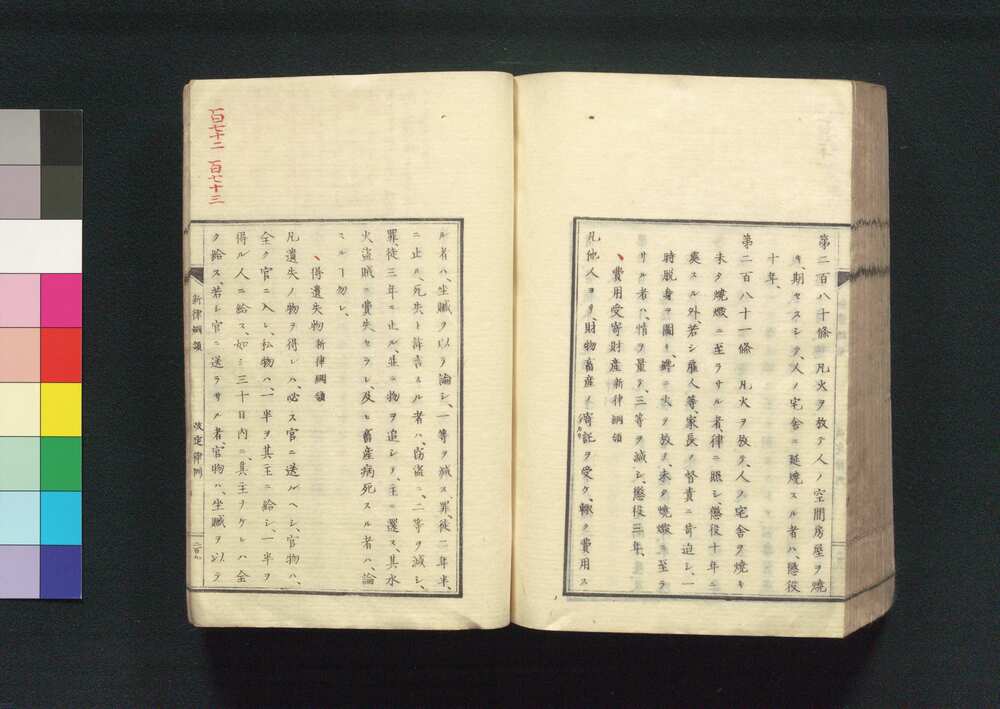 第二百八十條　凡火ヲ放テ人ノ空間房屋ヲ燒
キ、期セスシテ、人ノ宅舎ニ延燒スル者ハ、懲役
十年、
第二百八十一條　凡火ヲ放テ、人ノ宅舎ヲ燒キ
未タ燒燬ニ至ラサル者、律ニ照シ、懲役十年ニ
奠スル外、若シ雇人等、家長ノ督責ニ苛迫シ、一
時脱身ヲ圖リ、纔ニ火ヲ放テ、未タ燒燬ニ至ラ
サル者ハ、情ヲ量リ、三等ヲ減シ、懲役三年、
費用受寄財産 新律綱領
凡他人ヨリ、財物畜産ノ寄託ヲ受ケ、輙ク費用ス
ル者ハ、坐贓ヲ以テ論シ、一等ヲ減ス、罪、徒二年半、
ニ止ル、死失ト詐言スル者ハ、窃盗ニ、二等ヲ減シ、
罪、徒三年ニ止ル、並ニ物ヲ追シテ、主ニ還ス、其水
火盗賊ニ費失セラレ、及ヒ畜産病死スル者ハ、論
スルヿ勿レ、
得遺失物 新律綱領
凡遺失ノ物ヲ得レハ、必ス官ニ送ルヘシ、官物ハ、
全ク官ニ入レ、私物ハ、一半ヲ其主ニ給シ、一半ヲ
得ル人ニ給ス、如シ三十日内ニ、具主ナケレハ全
ク給ス、若シ官ニ送ラサル者、官物ハ、坐贓ヲ以テ
新律綱領　改定律例
二百九
百七十二　百七十三